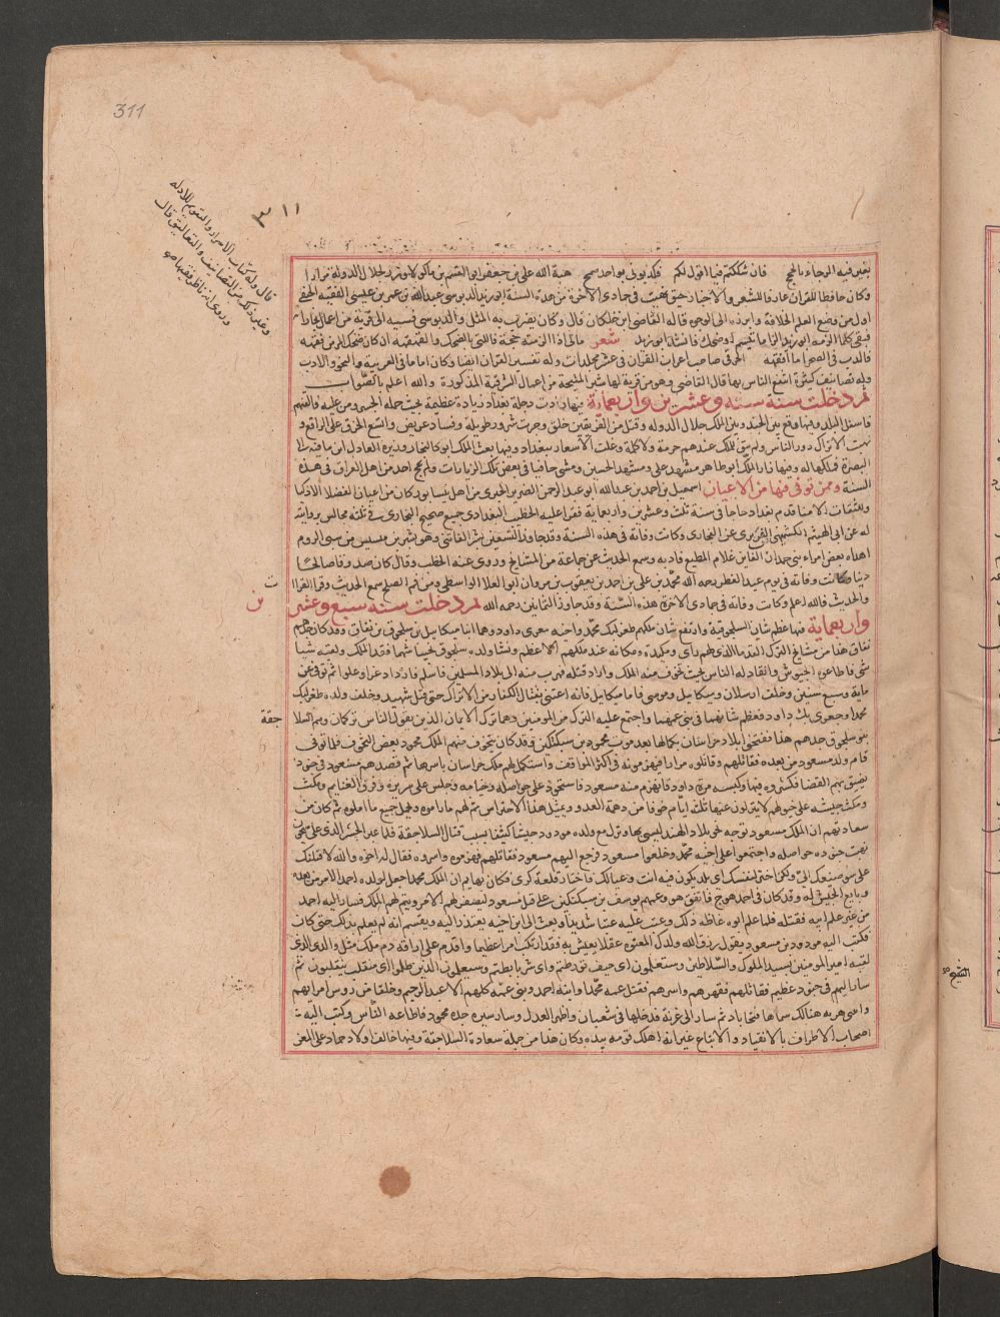 311
٣١١
قال وله كتاب الاسرار والتقويم للادله
وغير ذلك من التصانيف والتعاليق قال
وروى انه ناظر فقيها صح
فان شككتم فيما اقول لكم فكذبوني بواحد سمج هبة الله على بن جعفر ابو القسم بن ماكولا وزر لجلال الدولة مرارا
وكان حافظا للقران عارفا للشعر والاخبار خنق بهيت في جمادى الاخرة من هذه السنة ابو زيد الدبوسى عبد الله بن عمر بن عيسى الفقيه الحنفى
اول من وضع العلم الخلاف وابرزه الى الوجود قاله القاضى ابن خلكان قال وكان يضرب به المثل والدبوسى نسبه الى قرية من اعمال بخارا
فبقى كلما الزمه ابو زيد الزاما تبسم او ضحك فانشد ابو زيد شعر مالى اذا الزمته حجة قابلنى بالضحك والقهقهة ان كان ضحك المرء من فقهه
فالدب في الصحرا ما افقهه الحوفى صاحب اعراب القران في عشر مجلدات وله تفسير القران ايضا وكان اماما في العربية والنحو والادب
وله تصانيف كثيرة انتفع الناس بها قال القاضى وهو من قرية يقال لها شبرا من اعمال الشرقية المذكورة والله اعلم بالصواب
ثم دخلت سنة ستة وعشرين واربعماية فيها زادت دجلة بغداد زيادة عظيمة بحيث حمله الجسر ومن عليه فالقتهم
فاسفل البلد وفيها وقع بين الجند وبين الملك جلال الدوله وقتل من الفريقين خلق وجرت شرور طويلة وفساد عريض واتسع الخرق على الراقع و
نهبت الاتراك دور الناس ولم يبق للملك عندهم حرمة ولا كلمة وغلت الاسعار ببغداد وفيها بعث الملك ابو كاليجار وزيره العادل ابن مافنه الى
البصرة فملكها له وفيها زار الملك ابو طاهر مشهد على ومشهد الحسين ومشى حافيا في بعض تلك الزيارات ولم يحج احد من اهل العراق في هذه
السنة وممن توفى فيها من الاعيان اسمعيل بن احمد بن عبد الله ابو عبد الرحمن الضرير الحيرى من اهل نيسابور كان من اعيان الفضلا الاذكيا
والثقات الامنا قدم بغداد حاجا في سنة ثلث وعشرين واربعماية فقرا عليه الخطيب البغدادى جميع صحيح البخارى في ثلثة مجالس بروايته
له عن ابى الهيثم الكشميهنى عن الفربرى عن البخارى وكانت وفاته في هذه السنة وقد جاوز التسعين بشرى الفاتنى وهو بشرى بن مسيس من سبى الروم
اهداه بعض امراء بنى حمدان الفاتن غلام المطيع فادبه وسمع الحديث عن جماعة من المشايخ وروى عنه الخطيب وقال كان صدوقا صالحا
دينا وكانت وفاته في يوم عيد الفطر رحمه الله محمد بن على بن احمد بن يعقوب بن مروان ابو العلا الواسطى ومن فم الصلح سمع الحديث وقرا القرا
ت
والحديث فالله اعلم وكانت وفاته في جمادى الاخرة هذه السنة وقد جاوز الثمانين رحمه الله ثم دخلت سنة سبع وعشر
ين
واربعماية فيها عظم شان السلجوقية وارتفع شان ملكهم طغرلبك محمد واخيه جعرى داود وهما ابنا ميكاييل بن سلجوق بن نقاق وقد كان جدهم
ماية وسبع سنين وخلف ارسلان وميكاييل وموسى فاما ميكاييل فانه اعتنى بقتال الكفار من الاتراك حتى قتل شهيدا وخلف ولده طغرلبك
محمدا وجعرى بك داود فعظم شانهما في بنى عمهما واجتمع عليه الترك من المومنين وهم ترك الايمان الذين يقول الناس تركمان وهم السلا
جقة
بنو سلجوق جدهم هذا ففتحوا بلاد خراسان بكمالها بعد موت محمود بن سبكتكين وقد كان يتخوف منهم الملك محمود بعض التخوف فلما توفى
قام ولده مسعود من بعده فقاتلهم وقاتلوه مرارا فهزموه في اكثر المواقف واستكمل لهم ملك خراسان باسرها ثم قصدهم مسعود في جنود
يضيق بهم الفضا فكسروه فيها وكبسه مرة داود فانهزم منه مسعود فاستحوذ على حواصله وخيامه وجلس على سريره وفرق الغنايم ومكث
ومكث جيشه على خيولهم لا ينزلون عنها ثلث ايام خوفا من دهمة العدو وبمثل هذا الاحتراس تم لهم ما راموه وكمل جميع ما املوه ثم كان من
سعادتهم ان الملك مسعود توجه نحو بلاد الهند ليسبى بها وترك مع ولده مودود جيشا كثيفا بسبب قتال السلاجقة فلما عبر الجسر الذى على سيحون
نهبت جنوده حواصله واجتمعوا على اخيه محمد وخلعوا مسعود فرجع اليهم مسعود فقاتلهم فهزموه واسروه فقال له اخوه والله لا قتلتك
على سو صنيعك الى ولكن اختر لنفسك اى بلد يكون فيه انت وعيالك فاختار قلعة كرى فكان بها ثم ان الملك محمدا جعل لولده احمد الامر من بعده
وبايع الجيش له وقد كان في احمد هوج فاتفق هو وعمهم يوسف بن سبكتكين على قتل مسعود ليصفى لهم الامر ويتم لهم الملك فسار اليه احمد
من غير علم ابيه فقتله فلما علم ابوه غاظه ذلك وعتب عليه عتبا شديدا وبعث الى ابن اخيه يعتذر اليه ويقسم انه لم يعلم بذلك حتى كان
فكتب اليه مودود بن مسعود يقول رزق الله ولدك المعتوه عقلا يعيش به فقد ارتكب امرا عظيما واقدم على اراقة دم ملك مثل والدى الذى
لقبه امير المومنين بسيد الملوك والسلاطين وستعلمون اى حيف تورطتم واى شر تابطتم وسيعلم الذين ظلموا اى منقلب ينقلبون ثم
سار اليهم في جنود عظيم فقاتلهم فقهرهم واسرهم فقتل عمه محمدا وابنه احمد وبنى عمه كلهم الا عبد الرحيم وخلقا من رؤس امرائهم
وابتنى قرية هنالك سماها فتحاباد ثم سار الى غزنة فدخلها في شعبان واظهر العدل وسار سيرة جده محمود فاطاعه الناس وكتب اليه
اصحاب الاطراف بالانقياد والاتباع غير انه اهلك قومه بيده وكان هذا من جملة سعادة السلاجقة وفيها خالف اولاد حماد على المعز